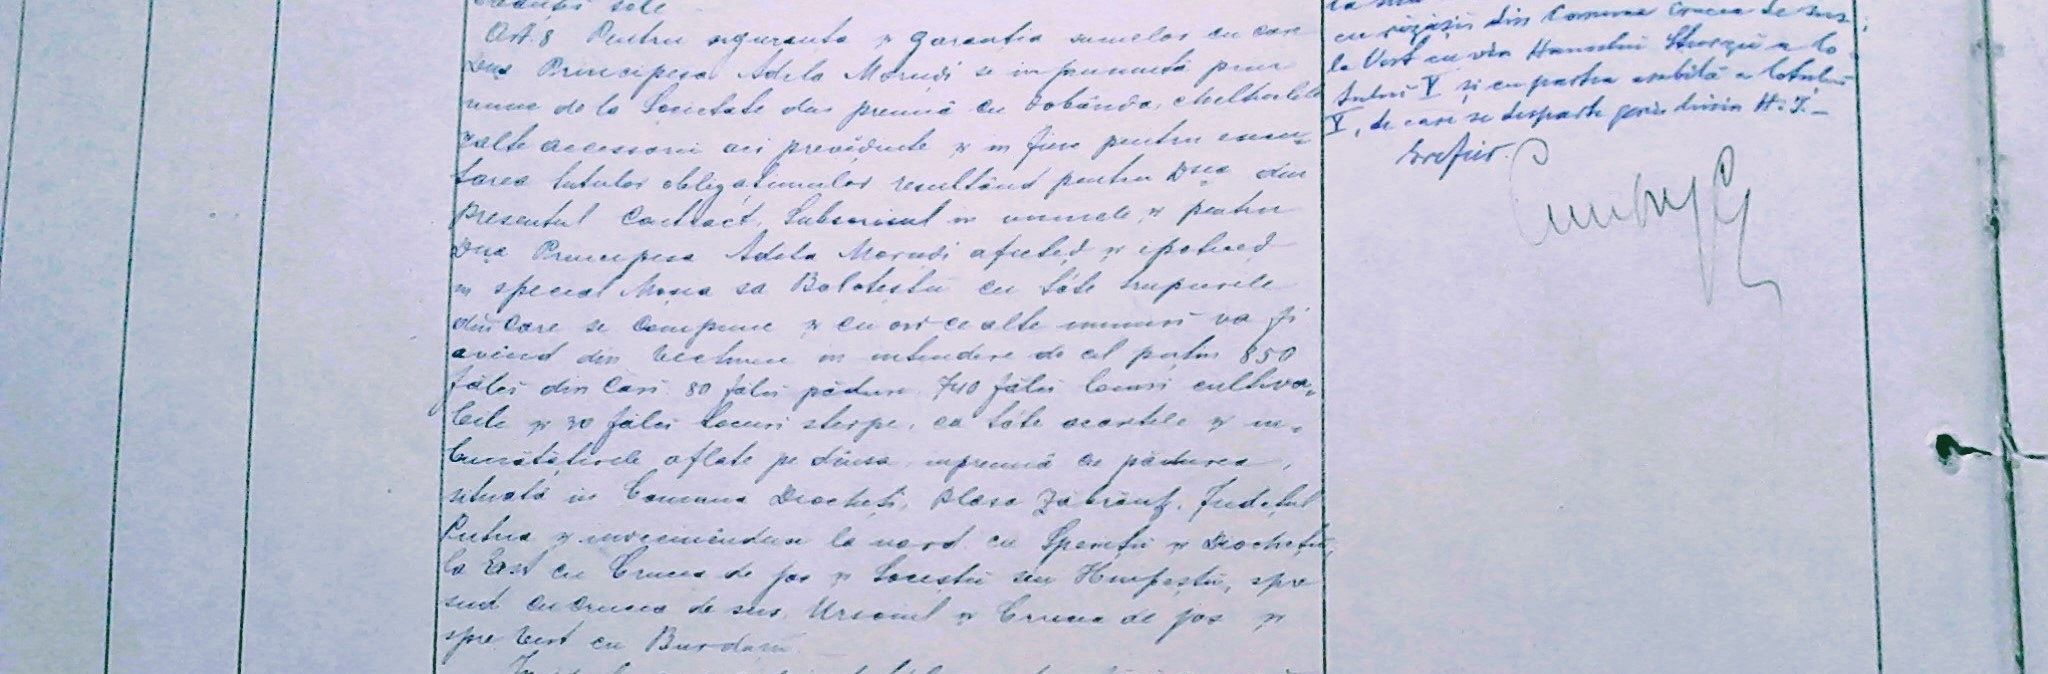 creanței sale
Art. 8 Pentru siguranta și garanția sumelor cu care
Dna Principesa Adela Moruzi se împrumută prin
mine de la Societate dus premiă cu dobânda, cheltuelile
și alte accesorii aci prevăzute și in fine pentru execu-
tarea tutulor obligațiunilor resultând pentru Dna din
presentul Contract, Subscrisul in numele și pentru
Dna Principesa Adela Moruzi afectez și ipotechez
in special Moșia sa Bolotești cu tóte trupurile
din care se compune și cu ori ce alte numiri va fi
avînd din vechime in intindere de cel puțin 850
fălci din cari 80 fălci pădure 740 fălci locuri cultiva-
bile și 30 fălci locuri sterpe, cu tóte acaretele și in-
bunătățirele aflate pe dînsa, inpreună cu pădurea,
situată in Comuna Diocheți, Plasa Zăbrăuț, Județul
Putna și invecinânduse la nord cu Spereții și Diocheții,
la Est cu Crucea de jos și spre
sud cu Crucea de sus, Ursoiul și Crucea de jos și
spre Vest cu Burdam
la
cu răzășii din Comuna Crucea de sus
la Vest cu via Hansului Sturzii a lo-
tului V și cu partea arabilă a lotului
V, de care se desparte prin linia H. I. –
Grefier